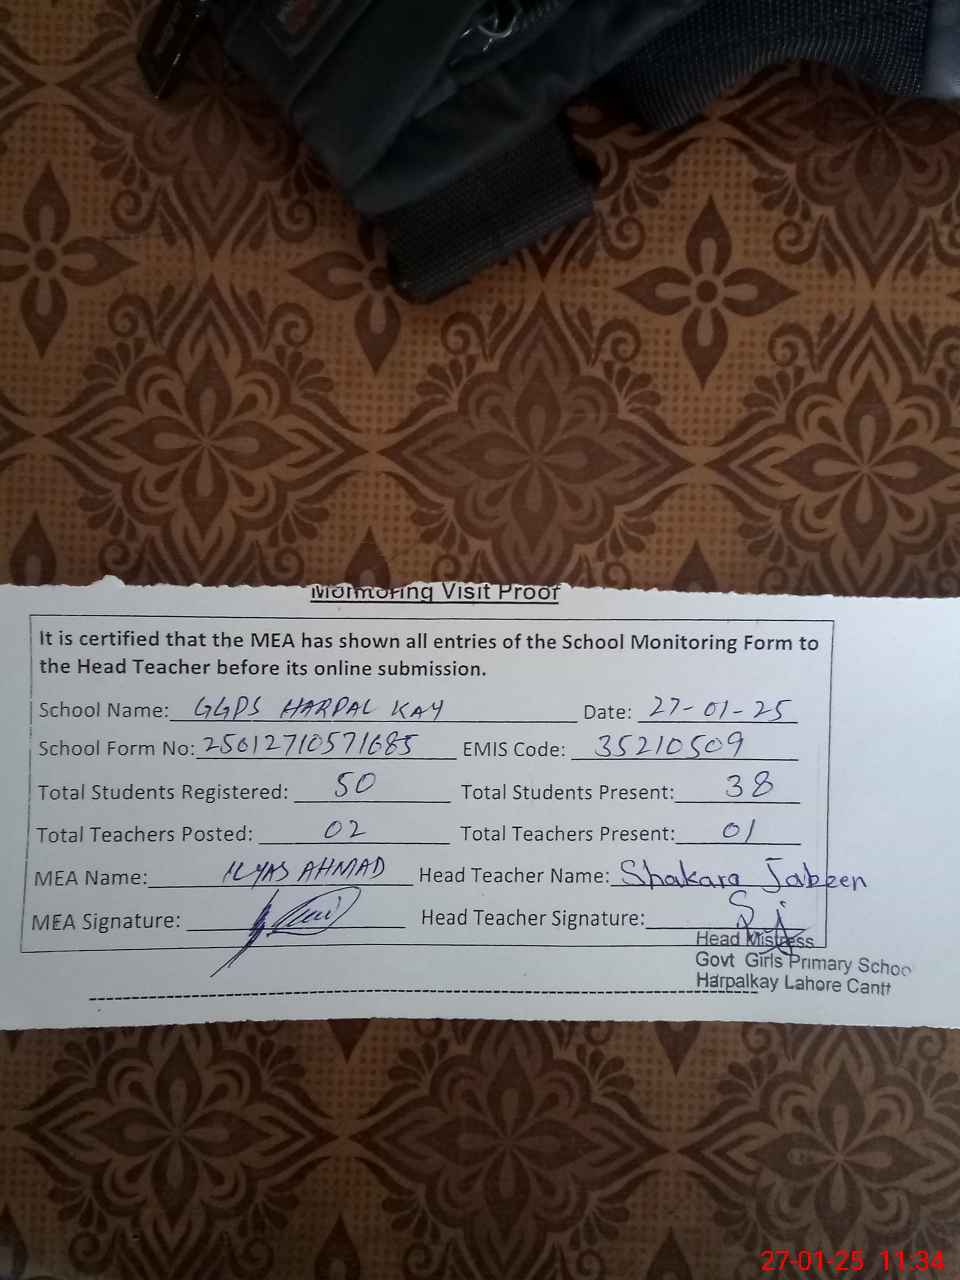 Monitoring Visit Proof
It is certified that the MEA has shown all entries of the School Monitoring Form to
the Head Teacher before its online submission.
School Name: GGPS HARPAL KAY Date: 27-01-25
School Form No: 25012710571685 EMIS Code: 35210509
Total Students Registered: 50 Total Students Present: 38
Total Teachers Posted: 02 Total Teachers Present: 01
MEA Name: ILYAS AHMAD Head Teacher Name: Shakara Jabeen
MEA Signature: Head Teacher Signature: S.j
Head Mistress
Govt Girls Primary School
Harpalkay Lahore Cantt
27-01-25 11:34